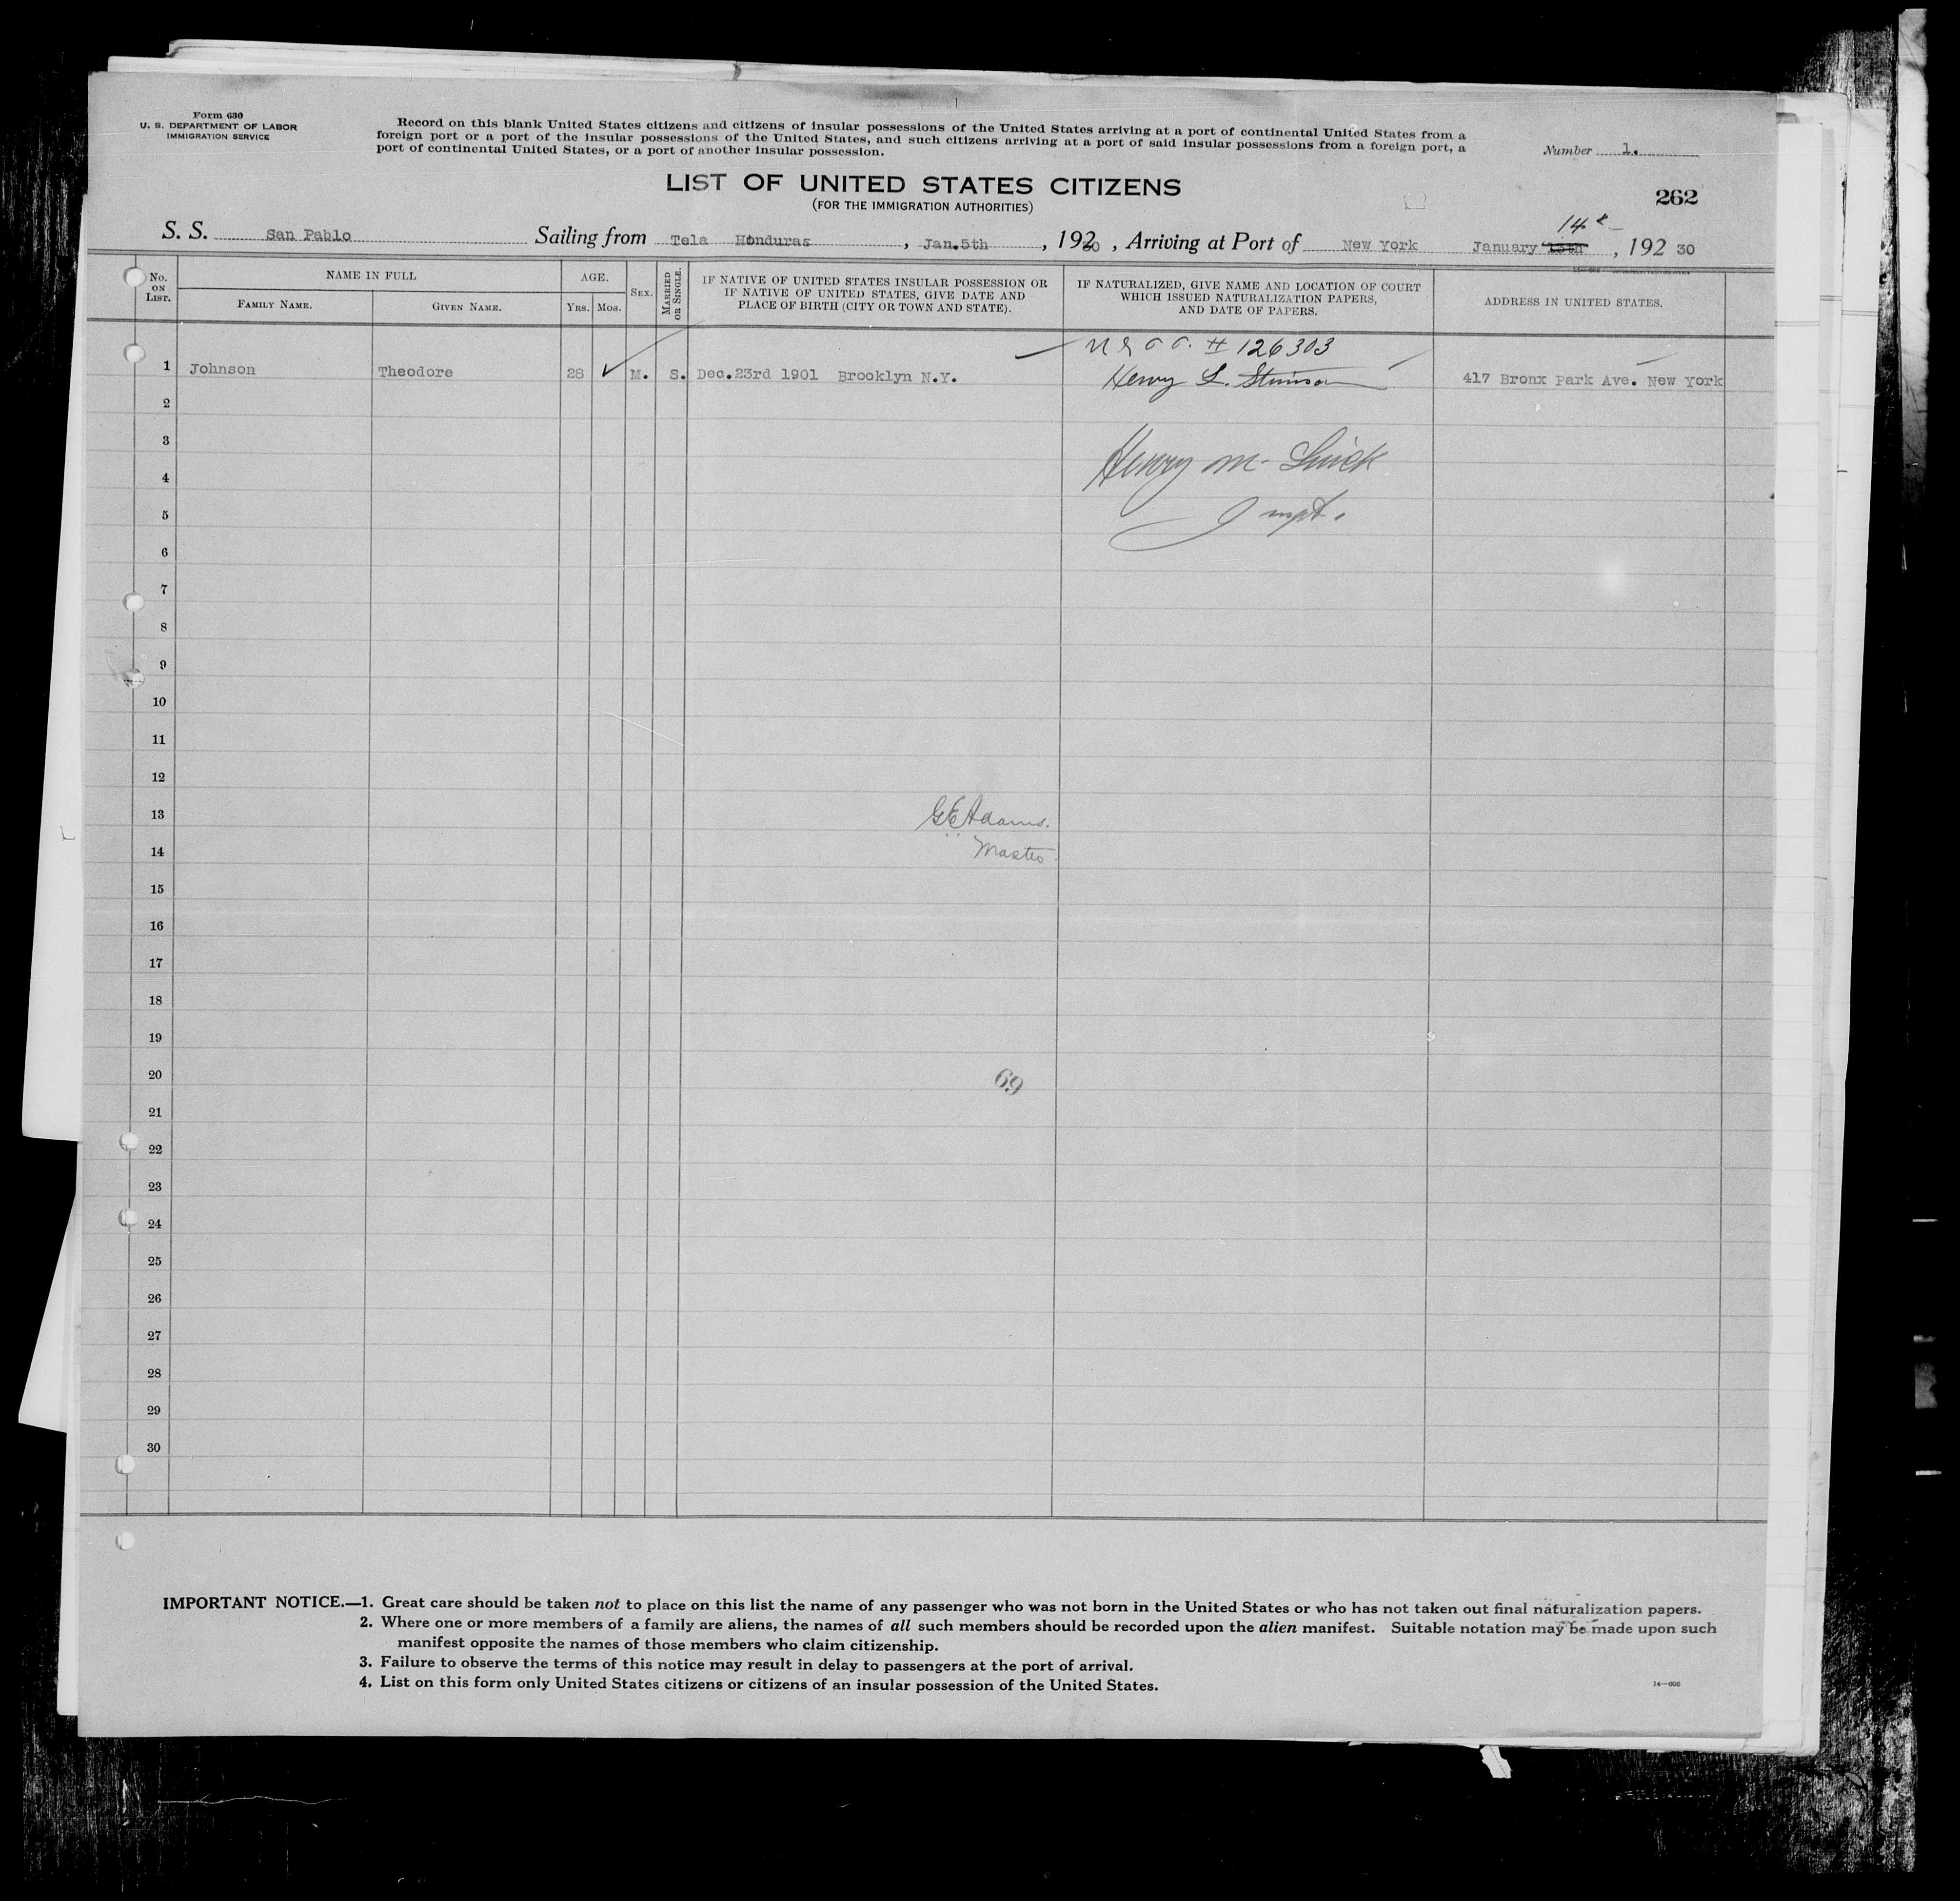 Form 630
U. S. DEPARTMENT OF LABOR
IMMIGRATION SERVICE
Record on this blank United States citizens and citizens of insular possessions of the United States arriving at a port of continental United States from a
foreign port or a port of the insular possessions of the United States, and such citizens arriving at a port of said insular possessions from a foreign port, a
port of continental United States, or a port of another insular possession.
Number 1.
LIST OF UNITED STATES CITIZENS
(FOR THE IMMIGRATION AUTHORITIES)
262
14
S. S. San Pablo Sailing from Tela Honduras, Jan.5th, 192 30, Arriving at Port of New York January 13th, 192 30
No. ON LIST.
NAME IN FULL
FAMILY NAME. GIVEN NAME.
AGE.
YRS. MOS.
SEX.
MARRIED OR SINGLE.
IF NATIVE OF UNITED STATES INSULAR POSSESSION OR
IF NATIVE OF UNITED STATES, GIVE DATE AND
PLACE OF BIRTH (CITY OR TOWN AND STATE).
IF NATURALIZED, GIVE NAME AND LOCATION OF COURT
WHICH ISSUED NATURALIZATION PAPERS,
AND DATE OF PAPERS.
ADDRESS IN UNITED STATES.
# 126303
1 Johnson Theodore 28 ✓ M. S. Dec.23rd 1901 Brooklyn N.Y. Henry L. Stimson 417 Bronx Park Ave. New York
2
3
Henry M.
4
5
6
7
8
9
10
11
12
13 G E Adams.
14 Master
15
16
17
18
19
20 69
21
22
23
24
25
26
27
28
29
30
IMPORTANT NOTICE.—1. Great care should be taken not to place on this list the name of any passenger who was not born in the United States or who has not taken out final naturalization papers.
2. Where one or more members of a family are aliens, the names of all such members should be recorded upon the alien manifest. Suitable notation may be made upon such
manifest opposite the names of those members who claim citizenship.
3. Failure to observe the terms of this notice may result in delay to passengers at the port of arrival.
4. List on this form only United States citizens or citizens of an insular possession of the United States.
14—606